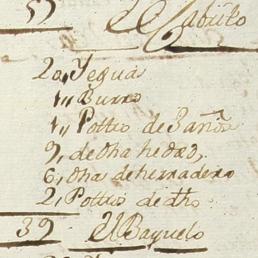 57 El Cabrito
20, Yeguas
1, Burro
1, Pottro de 3 añ.s
9, de dha hedad,
6, dha de herradero
2, Pottros de dho
39 El Bayuelo